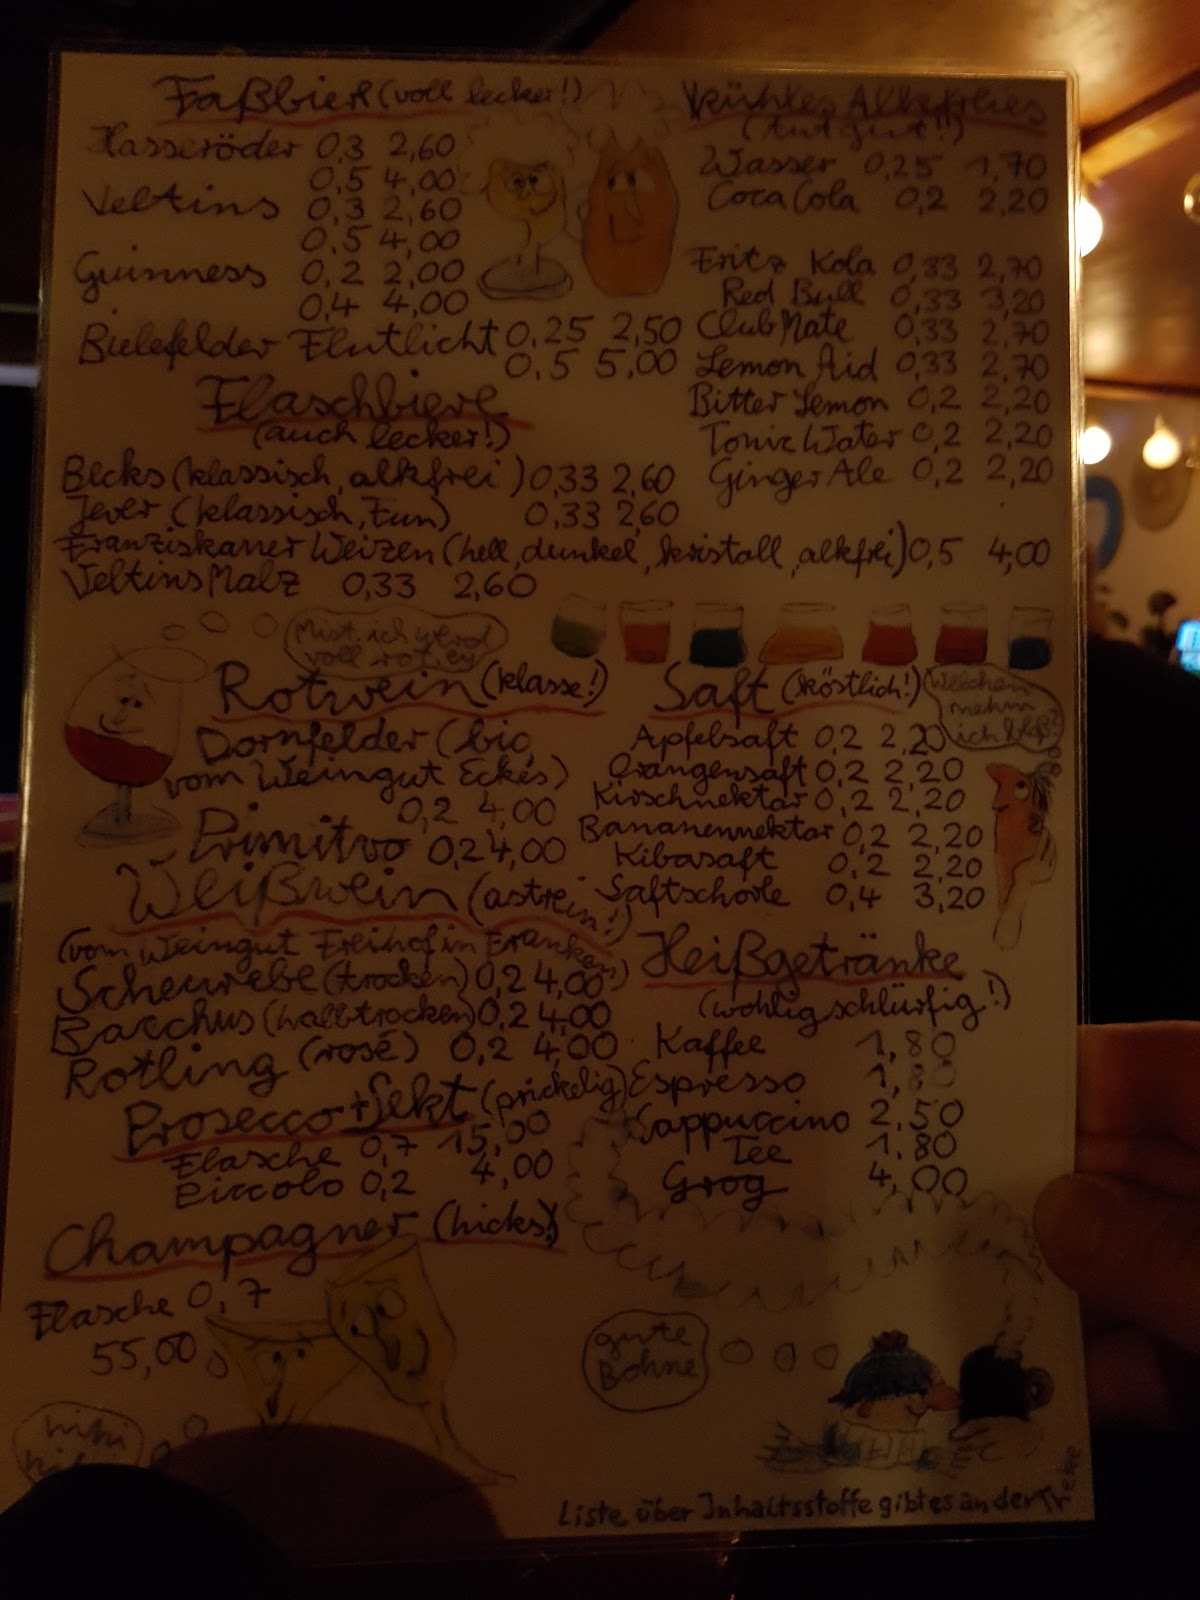 Faßbier (voll lecker!)
Hasseröder 0,3 2,60
0,5 4,00
Veltins 0,3 2,60
0,5 4,00
Guinness 0,2 2,00
0,4 4,00
Bielefelder Flutlicht 0,25 2,50
0,5 5,00
Flaschbiere
(auch lecker!)
Becks (klassisch, alkfrei) 0,33 2,60
Jever (klassisch, Fun) 0,33 2,60
Franziskaner Weizen (hell, dunkel, kristall, alkfrei) 0,5 4,00
Veltins Malz 0,33 2,60
Kühles Alkefreies
(tut gut!!)
Wasser 0,25 1,70
Coca Cola 0,2 2,20
Fritz Kola 0,33 2,70
Red Bull 0,33 3,20
Club Mate 0,33 2,70
Lemon Aid 0,33 2,70
Bitter Lemon 0,2 2,20
Tonic Water 0,2 2,20
Ginger Ale 0,2 2,20
Mist, ich werd
voll rot, ey
Rotwein (klasse!)
Dornfelder (bio,
vom Weingut Eckes)
0,2 4,00
Primitvo 0,2 4,00
Weißwein (astrein!)
(vom Weingut Freihof in Franken)
Scheurebe (trocken) 0,2 4,00
Bacchus (halbtrocken) 0,2 4,00
Rotling (rosé) 0,2 4,00
Prosecco + Sekt (prickelig)
Flasche 0,7 15,00
Piccolo 0,2 4,00
Champagner (hicks!)
Flasche 0,7
55,00
hihi
Saft (köstlich!)
Welchen
nehm
ich bloß?
Apfelsaft 0,2 2,20
Orangensaft 0,2 2,20
Kirschnektar 0,2 2,20
Bananennektar 0,2 2,20
Kibasaft 0,2 2,20
Saftschorle 0,4 3,20
Heißgetränke
(wohlig schlürfig!)
Kaffee 1,80
Espresso 1,80
Cappuccino 2,50
Tee 1,80
Grog 4,00
gute
Bohne
Liste über Inhaltsstoffe gibt es an der Treke